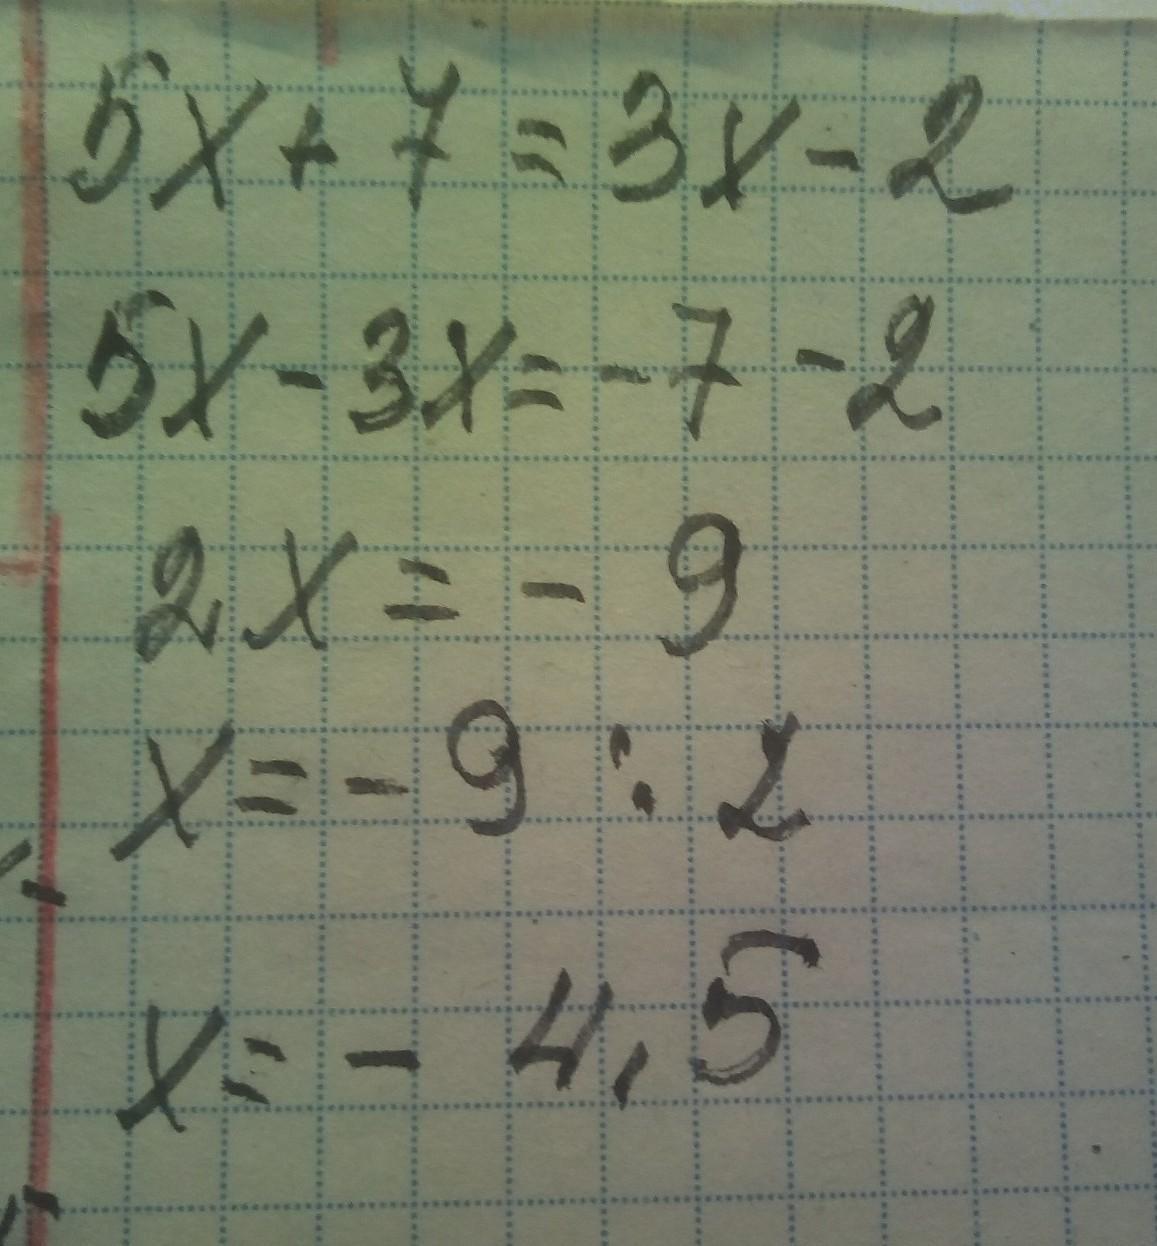 5x + 7 = 3x - 2
5x - 3x = - 7 - 2
2x = - 9
x = - 9 : 2
x = - 4,5